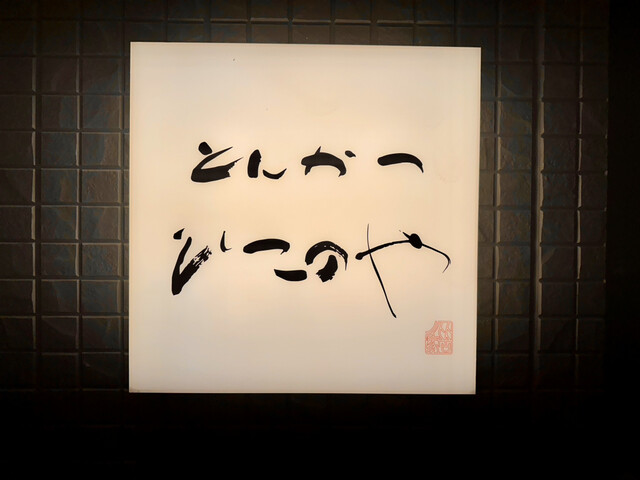 とんかつ
ひこのや